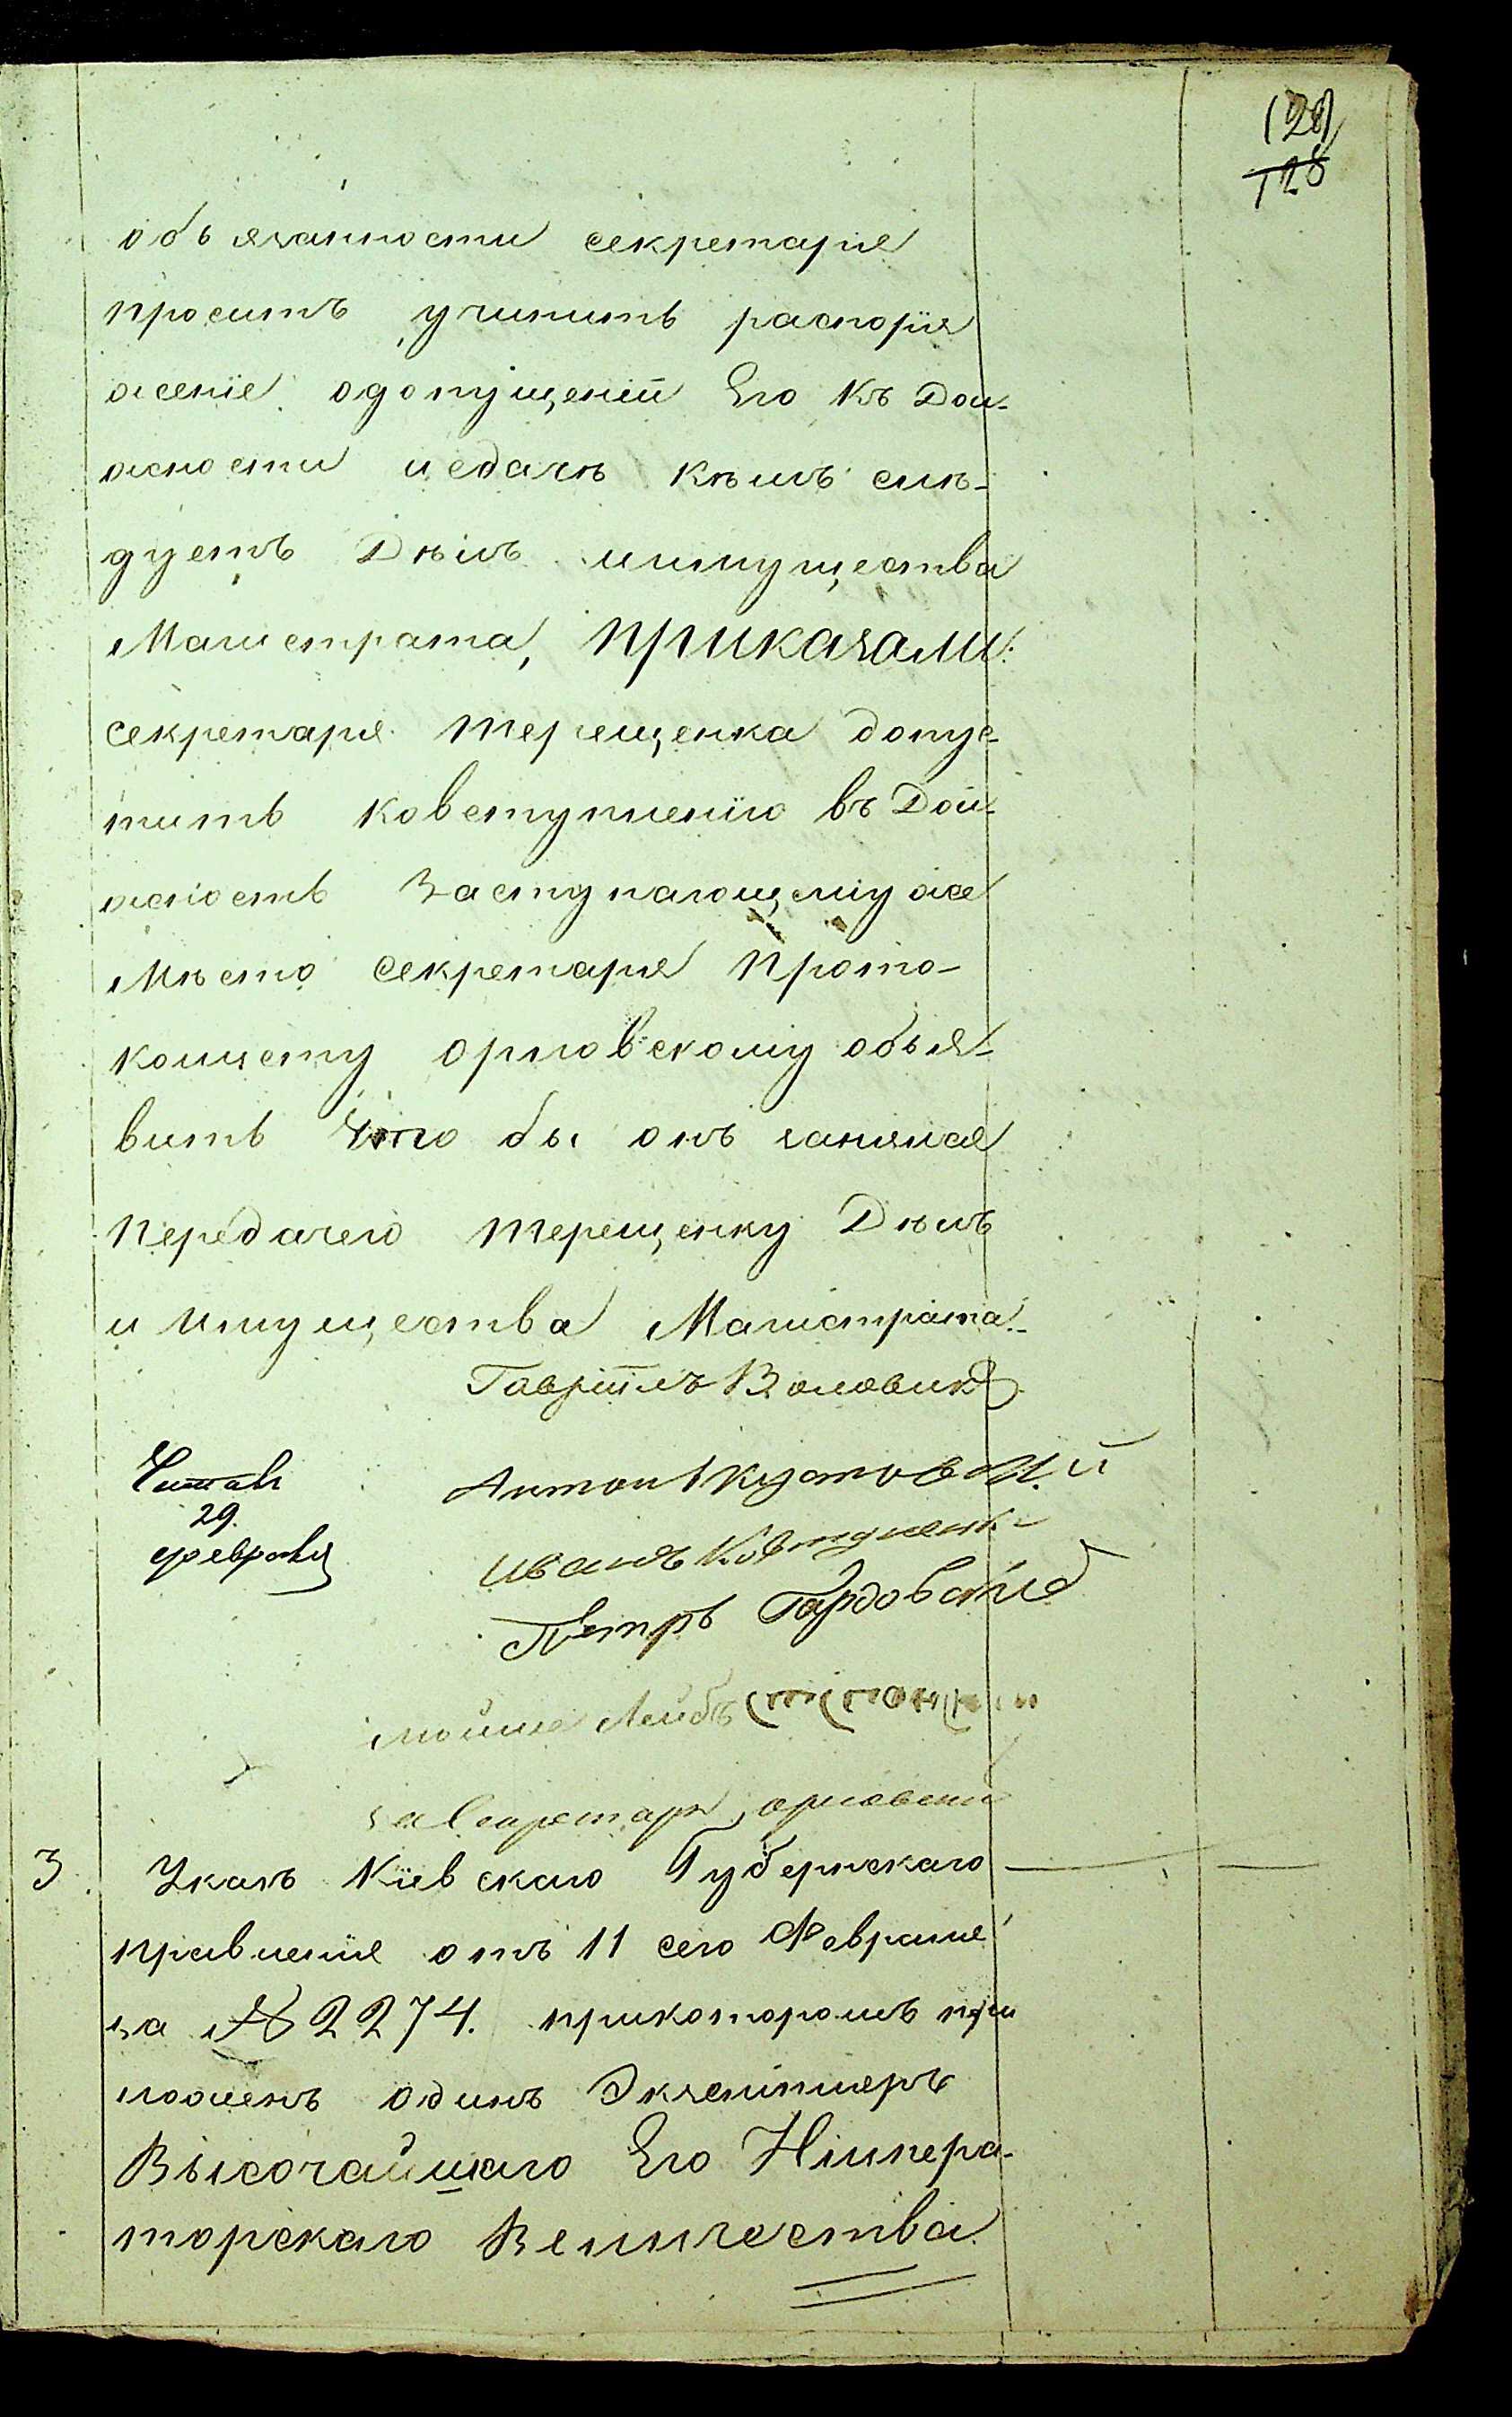 128
128
объязанности секретаря
проситъ учинить распоря
женіе одопущеніи Его Къ Дол-
жности исдачѣ кѣмъ слѣ-
дуетъ Дѣлъ имущества
Магистрата, приказали:
секретаря Терещенка допус-
тить Ковступленію въ Дол-
жность Заступающему же
Мѣсто Секретаря Прото-
колисту орловскому объя-
вить Что бы онъ занялся
Передачею Терещенку Дѣлъ
и Имущества Магистрата.
Гавріилъ Воловикъ
Антонъ Кустовскій
Читалъ
29.
февраля
Иванъ
Петръ Гордовскій
мойше Лейбъ
за Секретаря орловскій
3. Указъ Кіевскаго Губернскаго
правленія отъ 11 сего Февраля
за № 2274. прикоторомъ при
ложенъ одинъ Экземпляръ
Высочайшаго Его Импера-
торскаго Величества